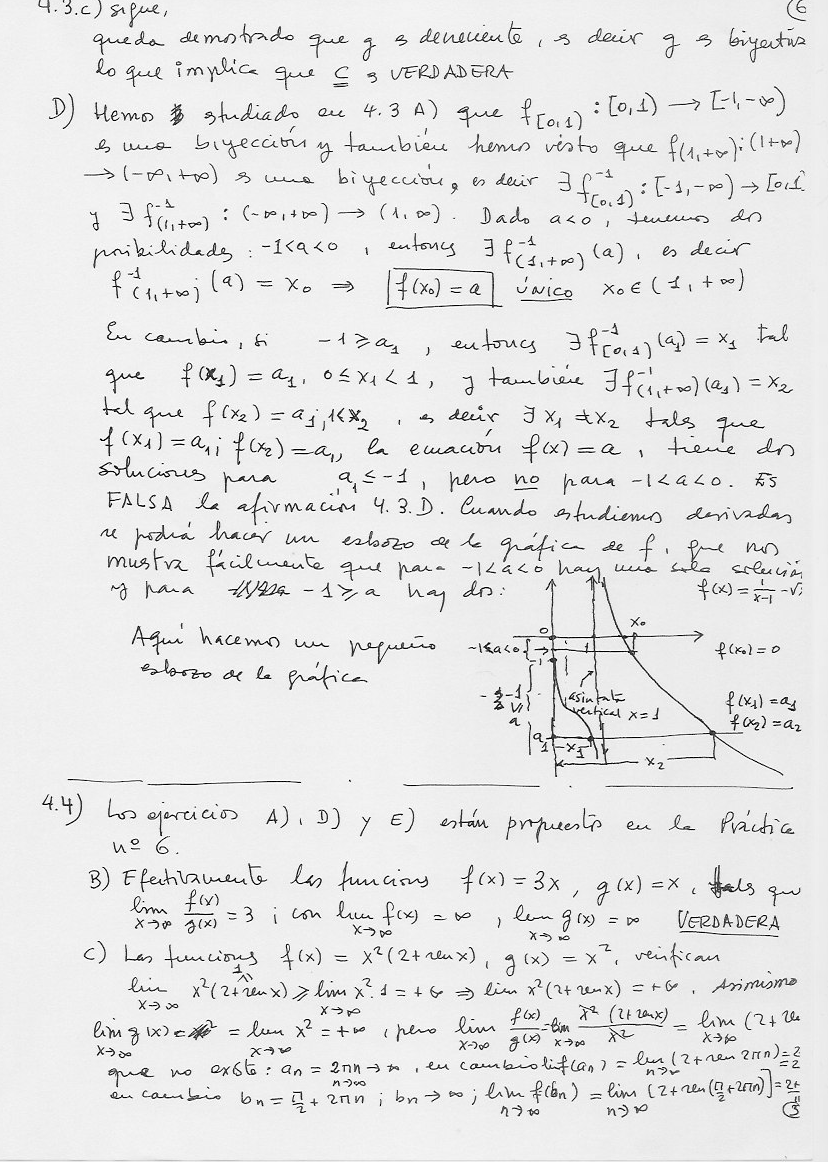 4.3.c) sigue, 6
queda demostrado que g es decreciente, es decir g es biyectiva
lo que implica que C es VERDADERA
D) Hemos estudiado en 4.3 A) que f[0,1) : [0,1) → [-1,-∞)
es una biyección y también hemos visto que f(1,+∞) : (1+∞)
→ (-∞,+∞) es una biyección, es decir ∃ f⁻¹[0,1) : [-1,-∞) → [0,1
y ∃ f⁻¹(1,+∞) : (-∞,+∞) → (1,∞). Dado a<0, tenemos dos
posibilidades : -1<a<0 , entonces ∃ f⁻¹(1,+∞) (a), es decir
f⁻¹(1,+∞) (a) = x₀ ⇒ f(x₀) = a único x₀ ∈ (1,+∞)
En cambio, si -1 ≥ a₁ , entonces ∃ f⁻¹[0,1) (a₁) = x₁ tal
que f(x₁) = a₁, 0 ≤ x₁ < 1, y también ∃ f⁻¹(1,+∞)(a₁) = x₂
tal que f(x₂) = a₁, 1<x₂ , es decir ∃ x₁ ≠ x₂ tales que
f(x₁) = a₁; f(x₂) = a₁, la ecuación f(x) = a, tiene dos
soluciones para a₁ ≤ -1, pero no para -1<a<0. Es
FALSA la afirmación 4.3.D. Cuando estudiemos derivadas
se podrá hacer un esbozo de la gráfica de f, que nos
muestra fácilmente que para -1<a<0 hay una sola solución
y para -1 ≥ a hay dos:
f(x) = 1/(x-1) - √
Aquí hacemos un pequeño
esbozo de la gráfica
0
1
x₀
-1≤a<0
-1
f(x₀) = 0
asíntota
vertical x=1
a
a₁
x₁
x₂
f(x₁) = a₁
f(x₂) = a₂
4.4) Los ejercicios A), D) y E) están propuestos en la Práctica
nº 6.
B) Efectivamente las funciones f(x) = 3x, g(x) = x, tales que
lim x→∞ f(x)/g(x) = 3 ; con lim x→∞ f(x) = ∞ , lim x→∞ g(x) = ∞ VERDADERA
C) Las funciones f(x) = x²(2+sen x), g(x) = x², verifican
lim x→∞ x²(2+sen x) ≥ lim x→∞ x².1 = +∞ ⇒ lim x²(2+sen x) = +∞. Asimismo
lim x→∞ g(x) = lim x→∞ x² = +∞ , pero lim x→∞ f(x)/g(x) = lim x→∞ x²(2+sen x)/x² = lim x→∞ (2+se
que no existe: aₙ = 2πn → ∞ n→∞, en cambio lim f(aₙ) = lim n→∞ (2+sen 2πn) = 2
en cambio bₙ = π/2 + 2πn ; bₙ → ∞ ; lim n→∞ f(bₙ) = lim n→∞ [2+sen(π/2+2πn)] = 2+
3